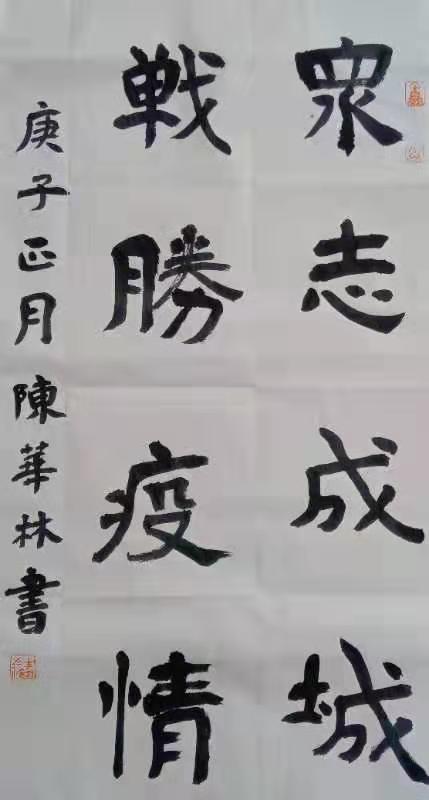 眾志成城
戦勝疫情
庚子正月陳華林書